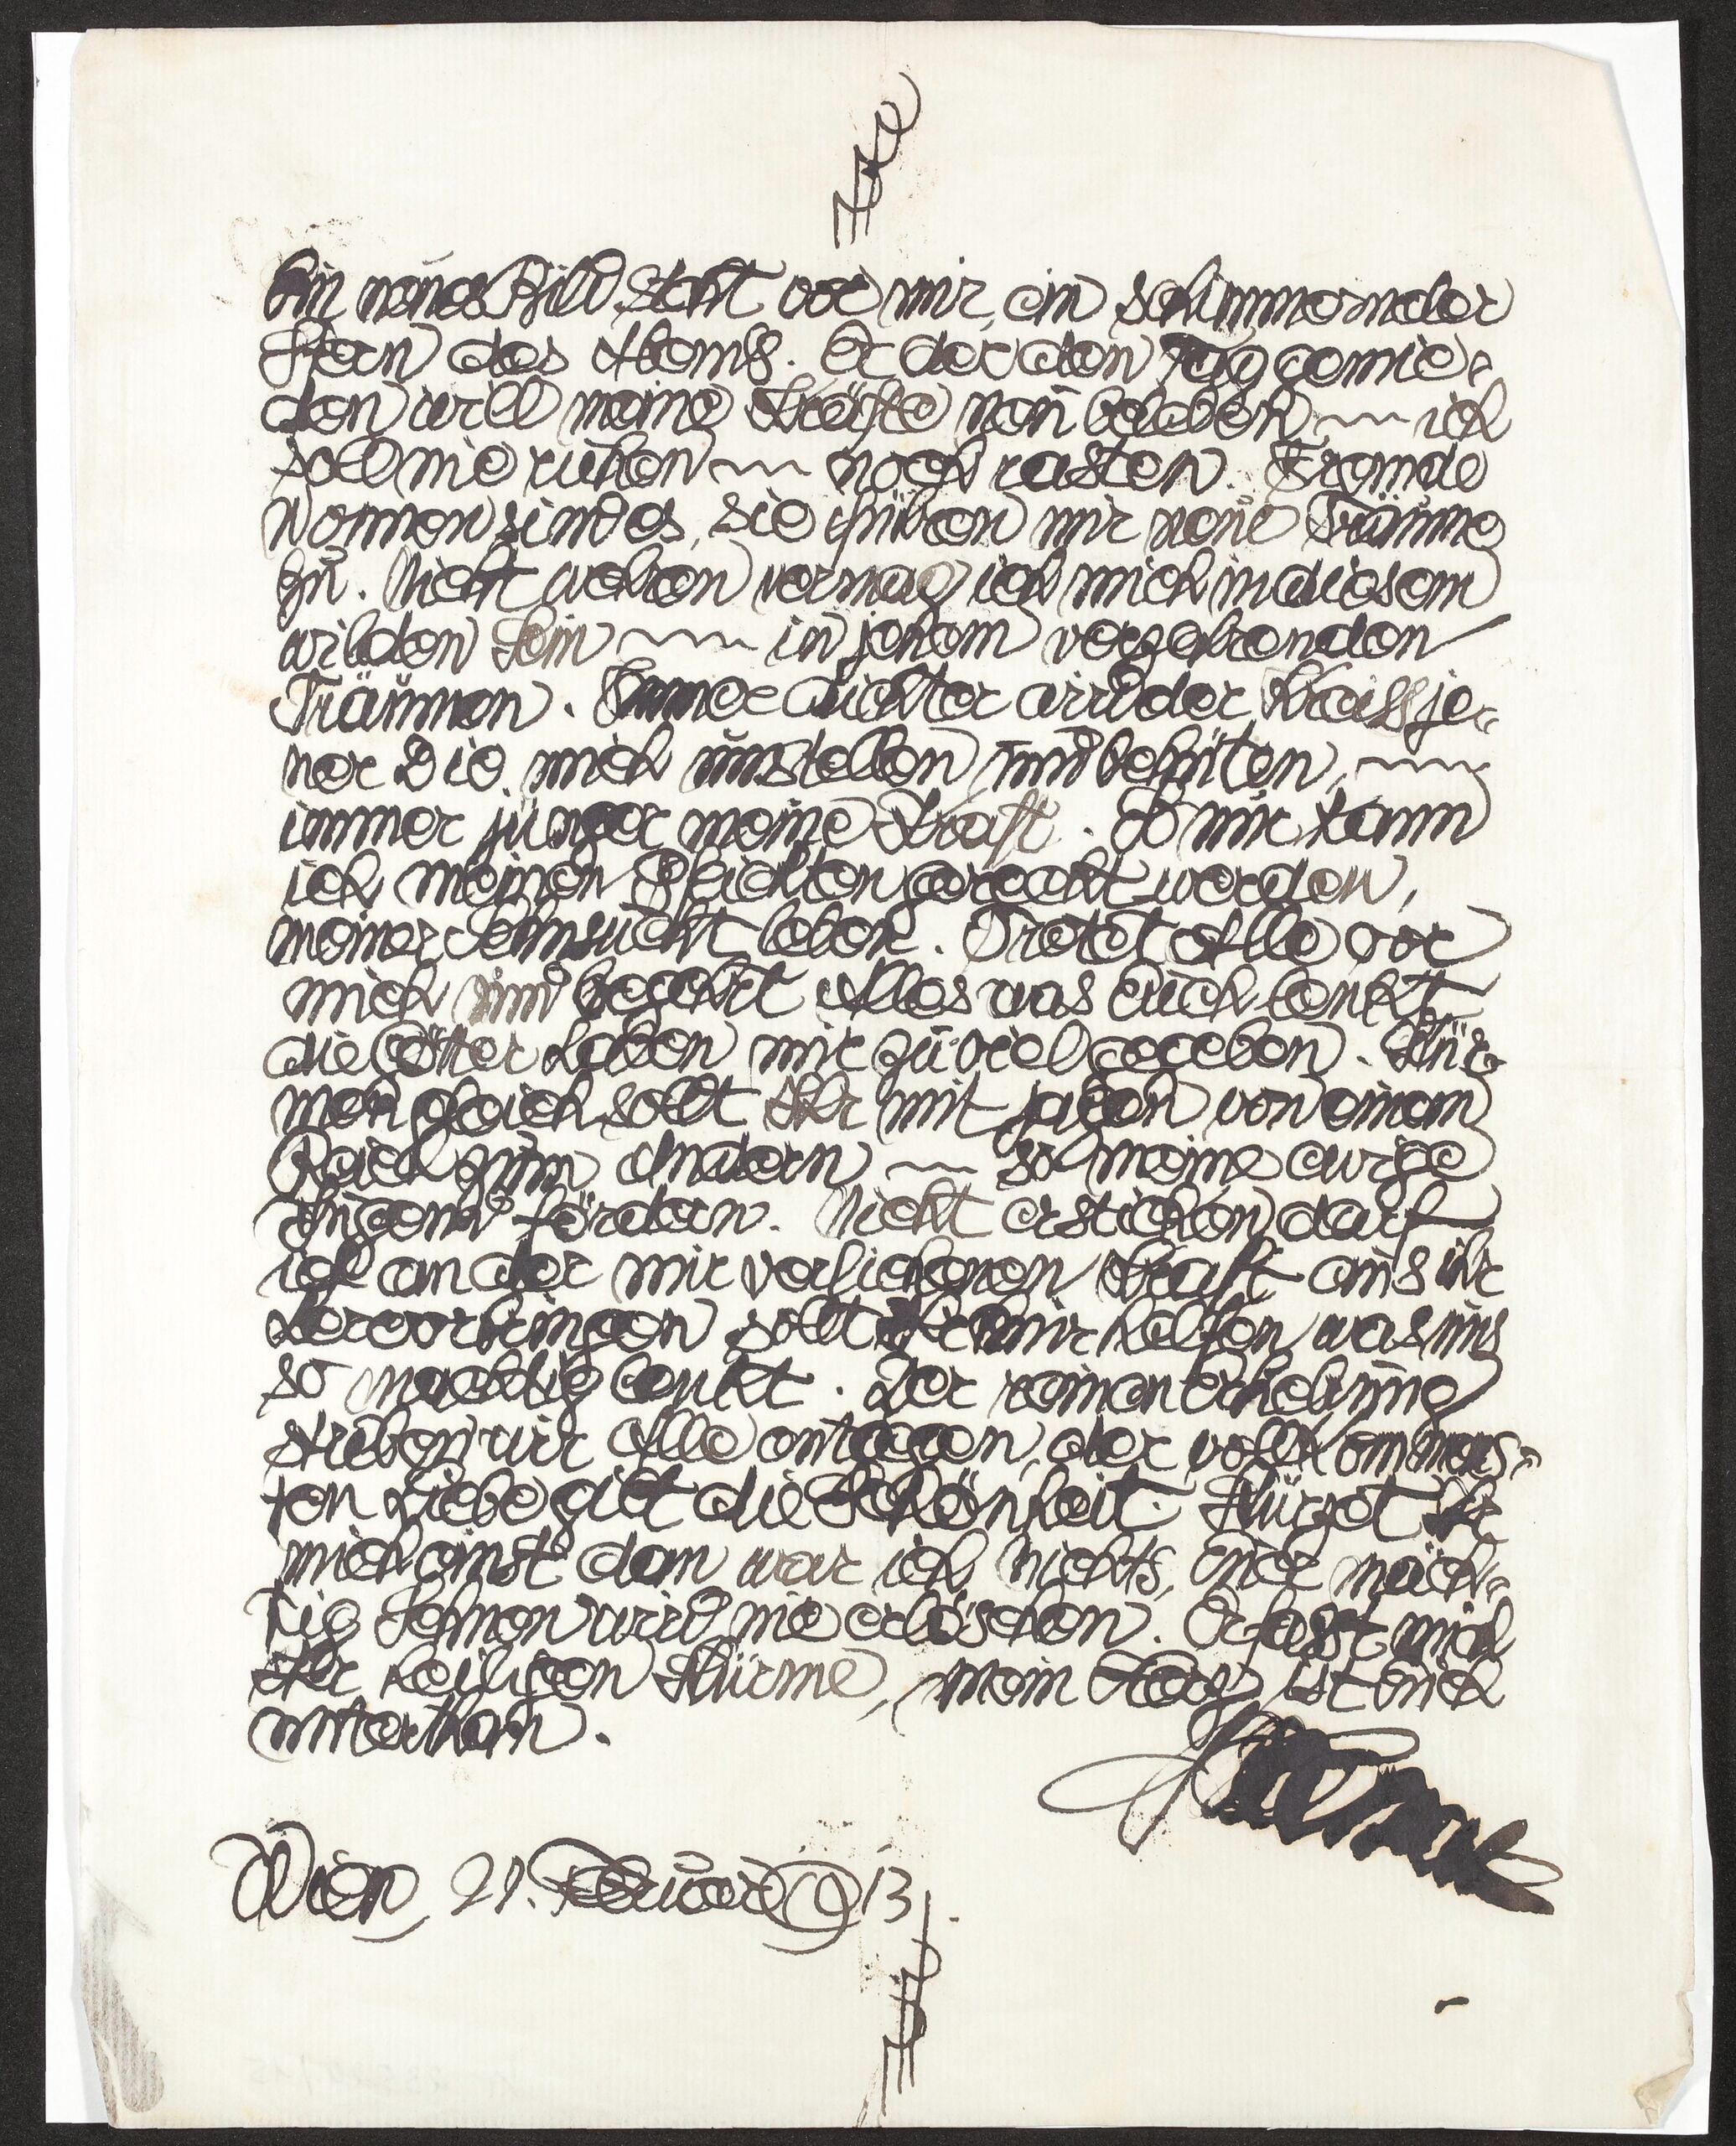 Ein neues Bild steht vor mir, ein schimmernder
Stern des Abends. Er der den Tag gemie-
den will meine Kräfte neu beleben — ich
soll nie ruhen — noch rasten. Fremde
Wonnen sind es, sie führen mir neue Träume
zu. Nicht wehren vermag ich mich in diesem
wilden Sein — in jenem verzehrenden
Träumen. Immer dichter wird der Kreis je-
ner Die mich umstellen und behüten, —
immer jünger meine Kraft. So nur kann
ich meinen Pflichten gerecht werden,
meiner Sehnsucht leben. Tretet Alle vor
mich und begehrt Alles was Euch lenkt
die Götter haben mir zu viel gegeben. Stür-
men gleich sollt Ihr mit jagen von einem
Reich zum Andern — so meine ewige
Jugend fördern. Nicht ersticken darf
ich an der mir verliehenen Kraft aus ihr
hervorbringen sollt Ihr mir helfen was uns
so mächtig lenkt. Der reinen Erhebung
streben wir Alle entgegen, der vollkommens-
ten Liebe gilt die Schönheit. Stürzet Ihr
mich einst dann war ich Nichts, Euer mäch-
tig Sehnen wird nie erlöschen. Erfasst mich
Ihr heiligen Stürme, mein Herz ist Euch
unterthan.
Wien, 21. Februar 1913.